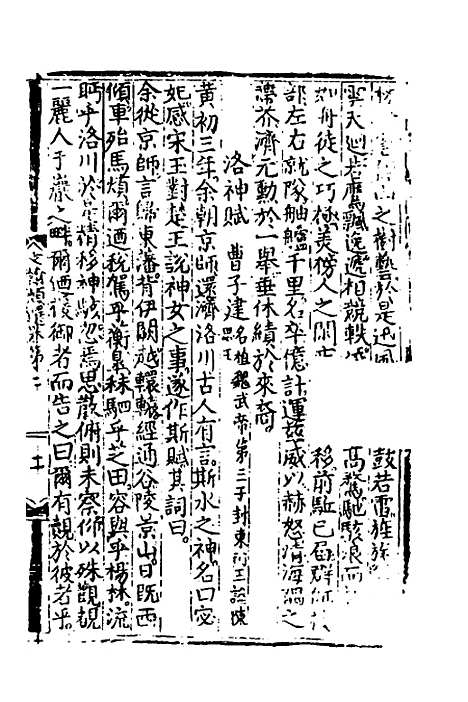 之勸於是迅風
鼓若雷旌旗
天迴若鷹飄逸遞相競軼
高驚馳駭浪而
舟徒之巧極美榜人之閑
移前駐已屆群師
部左右就隊舳艫千里名卒億計運茲威以赫怒清海隅之
蔕芥濟元勳於一舉垂休績於來裔
洛神賦 曹子建 名植魏武帝第三子封東阿王謚陳思王
黃初三年余朝京師還濟洛川古人有言斯水之神名曰宓
妃感宋玉對楚王說神女之事遂作斯賦其詞曰
余從京師言歸東藩背伊闕越轘轅經通谷陵景山日旣西
傾車殆馬煩爾迺稅駕乎衡皋秣駟乎芝田容與乎楊林流
眄乎洛川於是精移神駭忽焉思散俯則未察仰以殊觀覩
一麗人于巖之畔爾迺援御者而告之曰爾有覿於彼者乎